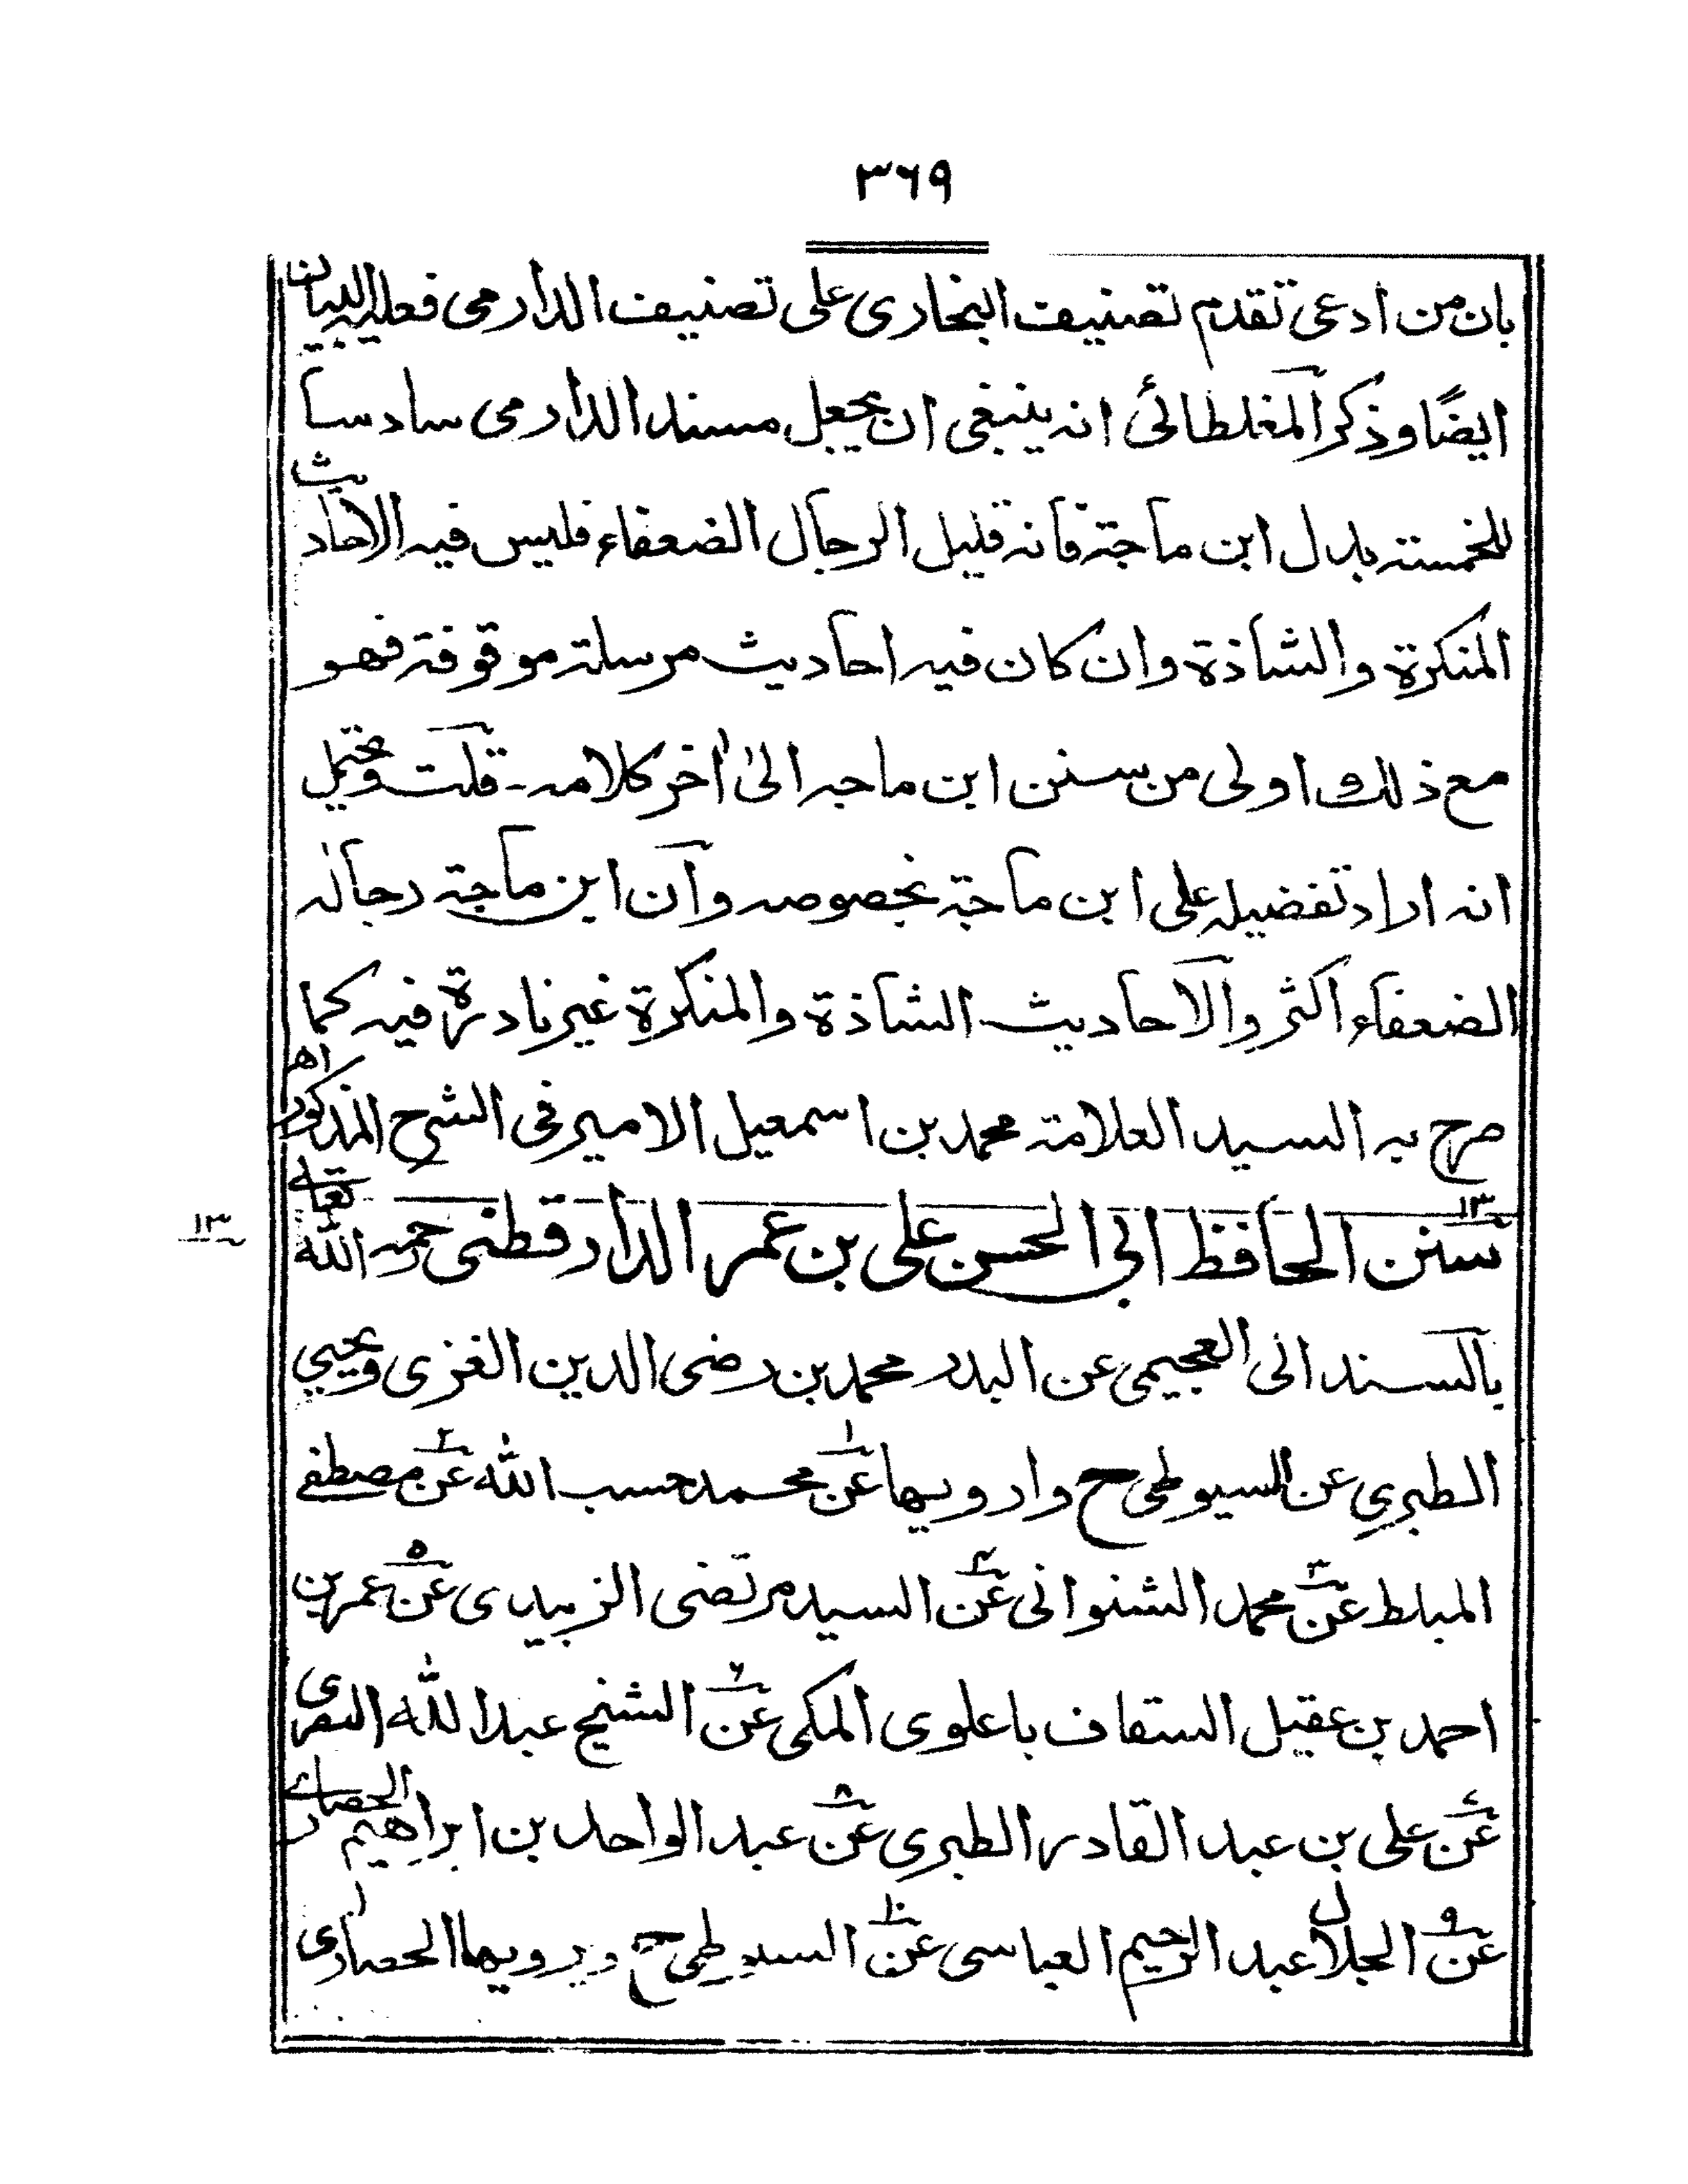 ٣٦٩
بان من ادعى تقدم تصنيف البخارى على تصنيف الدارمى فعليه البيان
ايضًا وذكر المغلطائى انه ينبغى ان يجعل مسند الدارمى سادسا
للخمسة بدل ابن ماجة فانه قليل الرجال الضعفاء فليس فيه الاحاديث
المنكرة والشاذة وان كان فيه احاديث مرسلة موقوفة فهو
مع ذلك اولى من سنن ابن ماجه الىٰ اٰخر كلامه - قلت ويحتمل
انه اراد تفضيله على ابن ماجة بخصوصه وان ابن ماجة رجاله
الضعفاء اكثر والاحاديث الشاذة والمنكرة غير نادرة فيه كما
صرح به السيد العلامة محمد بن اسمعيل الامير فى الشرح المذكور اهـ
١٣ سنن الحافظ ابي الحسن على بن عمر الدارقطنى رحمه الله تعالى
١٣
بالسند الى العجيمى عن البدر محمد بن رضى الدين الغزى ويحيي
الطبري عن السيوطى ح وارويها عن١ محمد حسب الله عن٢ مصطفے
المبلط عن٣ محمد الشنوانى عن٤ السيد مرتضى الزبيدى عن٥ عمر بن
احمد بن عقيل السقاف باعلوى المكى عن٦ الشيخ عبد الله البصرى
عن٧ على بن عبد القادر الطبرى عن٨ عبد الواحد بن ابراهيم الحصارى
عن٩ الجلال عبد الرحيم العباسى عن١٠ السيوطى ح ويرويها الحصارى